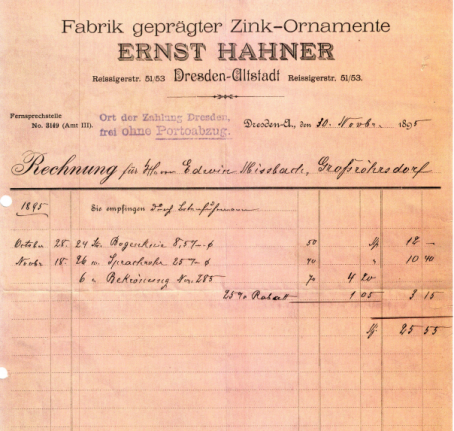 Fabrik geprägter Zink-Ornamente
ERNST HAHNER
Reissigerstr. 51/53 Dresden-Altstadt Reissigerstr. 51/53.
Fernsprechstelle
No. 3149 (Amt III).
Ort der Zahlung Dresden,
frei ohne Portoabzug.
Dresden-A., den 30. Novbr. 1895
Rechnung für Herrn Edwin Missbach, Großröhrsdorf
1895
Sie empfingen durch
October 28. 24 50 12 –
Novbr 18. 26 m 40 " 10 40
6 " Bekrönung Nro. 285 70 4 20
25% Rabatt 1 05 3 15
25 55